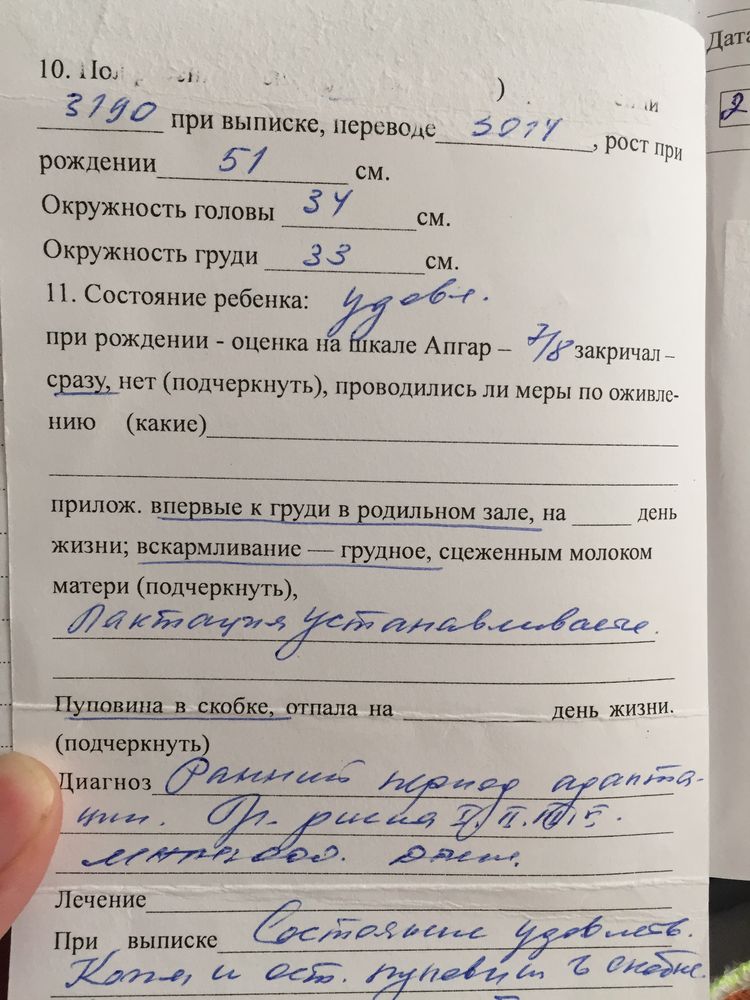 10. Пол )
3190 при выписке, переводе 3014, рост при
рождении 51 см.
Окружность головы 34 см.
Окружность груди 33 см.
11. Состояние ребенка: удовл.
при рождении - оценка на шкале Апгар – 7/8 закричал –
сразу, нет (подчеркнуть), проводились ли меры по оживле-
нию (какие)
прилож. впервые к груди в родильном зале, на ____ день
жизни; вскармливание — грудное, сцеженным молоком
матери (подчеркнуть),
Лактация устанавливается.
Пуповина в скобке, отпала на ____ день жизни.
(подчеркнуть)
Диагноз Ранний период адапта-
ции. Гр. риска
Лечение
При выписке Состояние удовлетв.
Кожа и ост. пуповины в скобке.
Дата
2